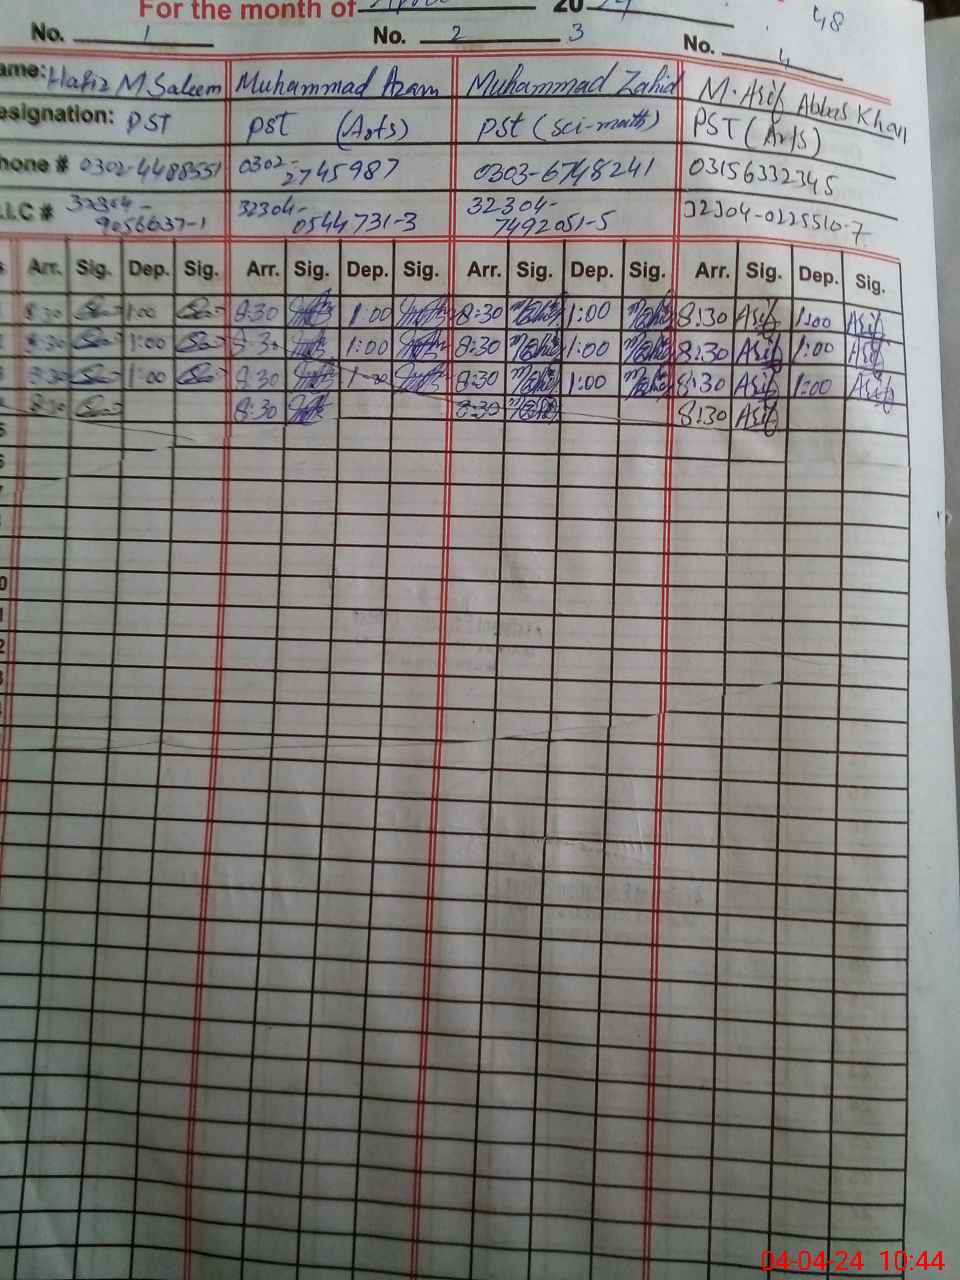 For the month of April 2024
48
No. 1 No. 2 3 No. 4
ame: Hafiz M Saleem Muhammad Azam Muhammad Zahid M. Asif Abbas Khan
esignation: PST PST (Arts) PST (sci-math) PST (Arts)
hone # 0302-4488551 0302-2745987 0303-6748241 03156332345
LC # 32304-9056637-1 32304-0544731-3 32304-7492051-5 32304-0225510-7
Arr. Sig. Dep. Sig. Arr. Sig. Dep. Sig. Arr. Sig. Dep. Sig. Arr. Sig. Dep. Sig.
8:30 1:00 8:30 1:00 8:30 1:00 8:30 Asif 1:00 Asif
8:30 1:00 8:30 1:00 8:30 1:00 8:30 Asif 1:00 Asif
8:30 1:00 8:30 1:00 8:30 1:00 8:30 Asif 1:00 Asif
8:30 8:30 8:30 8:30 Asif
04-04-24 10:44